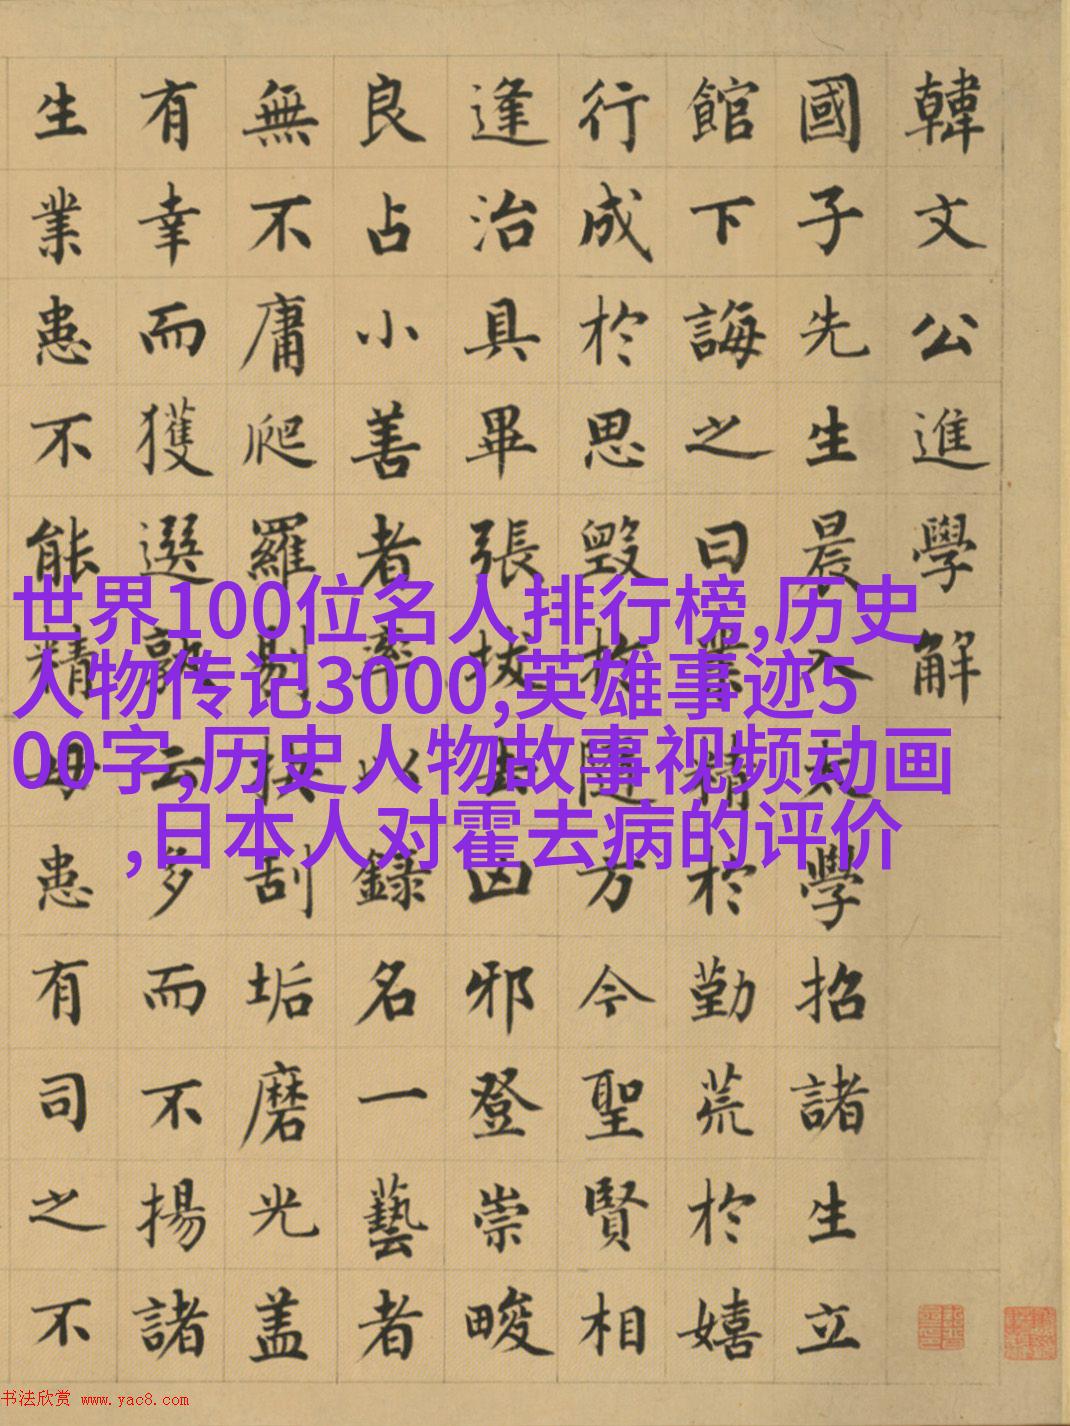 韓文公進學解
國子先生晨入太學招諸生立
館下誨之曰業精於勤荒於嬉
行成於思毀於隨方今聖賢相
逢治具畢張拔去凶邪登崇畯
良占小善者率以錄名一藝者
無不庸爬羅剔抉刮垢磨光盖
有幸而獲選孰云多而不揚諸
生業患不能精毋患有司之不
世界100位名人排行榜,历史
人物传记3000,英雄事迹5
00字,历史人物故事视频动画
,日本人对霍去病的评价
书法欣赏 www.yac8.com